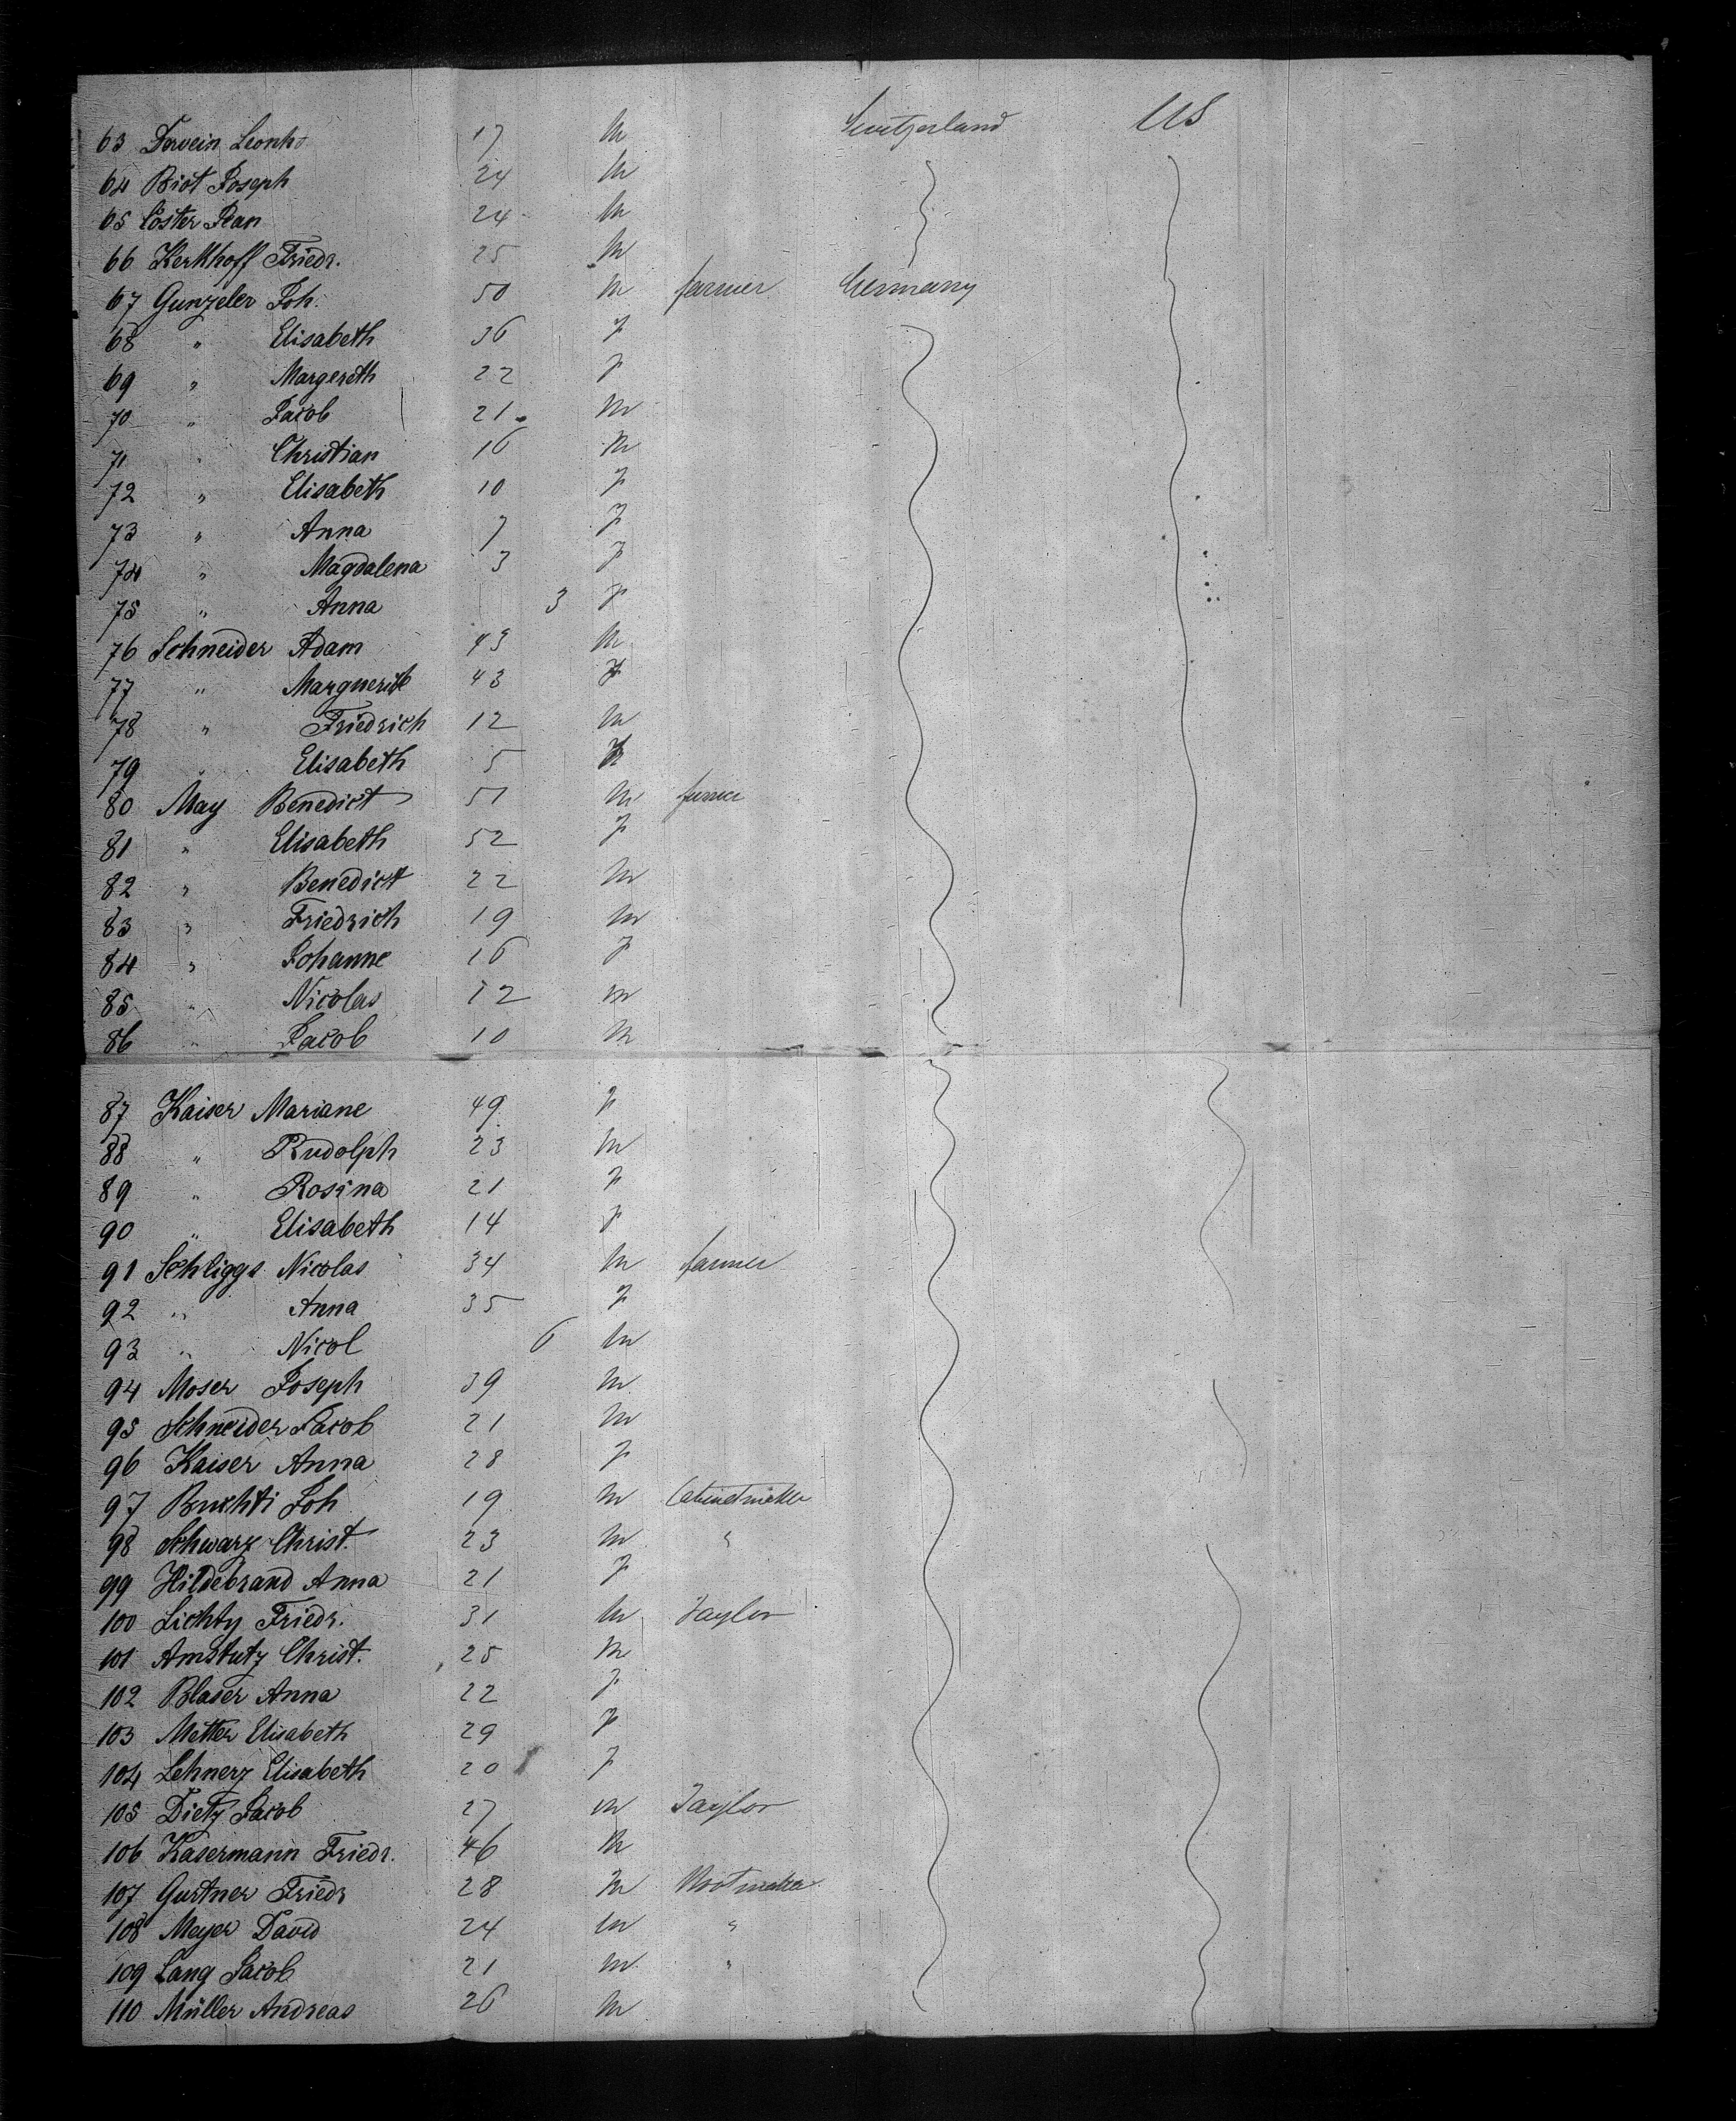 63 Leonh 17 m Switzerland US
64 Biot Joseph 24 m
65 Coster Jean 24 m
66 Kerkhoff Friedr. 25 m
67 Gunzeler Joh. 50 m farmer Germany
68 " Elisabeth 36 f
69 " Margereth 22 f
70 " Jacob 21 m
71 " Christian 16 m
72 " Elisabeth 10 f
73 " Anna 7 f
74 " Magdalena 3 f
75 " Anna 3 f
76 Schneider Adam 43 m
77 " Marguerite 43 f
78 " Friedrich 12 m
79 " Elisabeth 5 f
80 May Benedict 51 m farmer
81 " Elisabeth 52 f
82 " Benedict 22 m
83 " Friedrich 19 m
84 " Johanne 16 f
85 " Nicolas 12 m
86 " Jacob 10 m
87 Kaiser Mariane 49 f
88 " Rudolph 23 m
89 " Rosina 21 f
90 " Elisabeth 14 f
91 Schliggs Nicolas 34 m farmer
92 " Anna 35 f
93 " Nicol 6 m
94 Moser Joseph 39 m
95 Schneider Jacob 21 m
96 Kaiser Anna 28 f
97 Joh 19 m Cabinetmaker
98 Schwarz Christ. 23 m "
99 Hildebrand Anna 21 f
100 Lichty Friedr. 31 m Taylor
101 Amstutz Christ. 25 m
102 Blaser Anna 22 f
103 Metter Elisabeth 29 f
104 Lehnerz Elisabeth 20 f
105 Dietz Jacob 27 m Taylor
106 Kasermann Friedr. 46 m
107 Gurtner Friedr 28 m Bootmaker
108 Meyer David 24 m "
109 Lang Jacob 21 m "
110 Müller Andreas 26 m